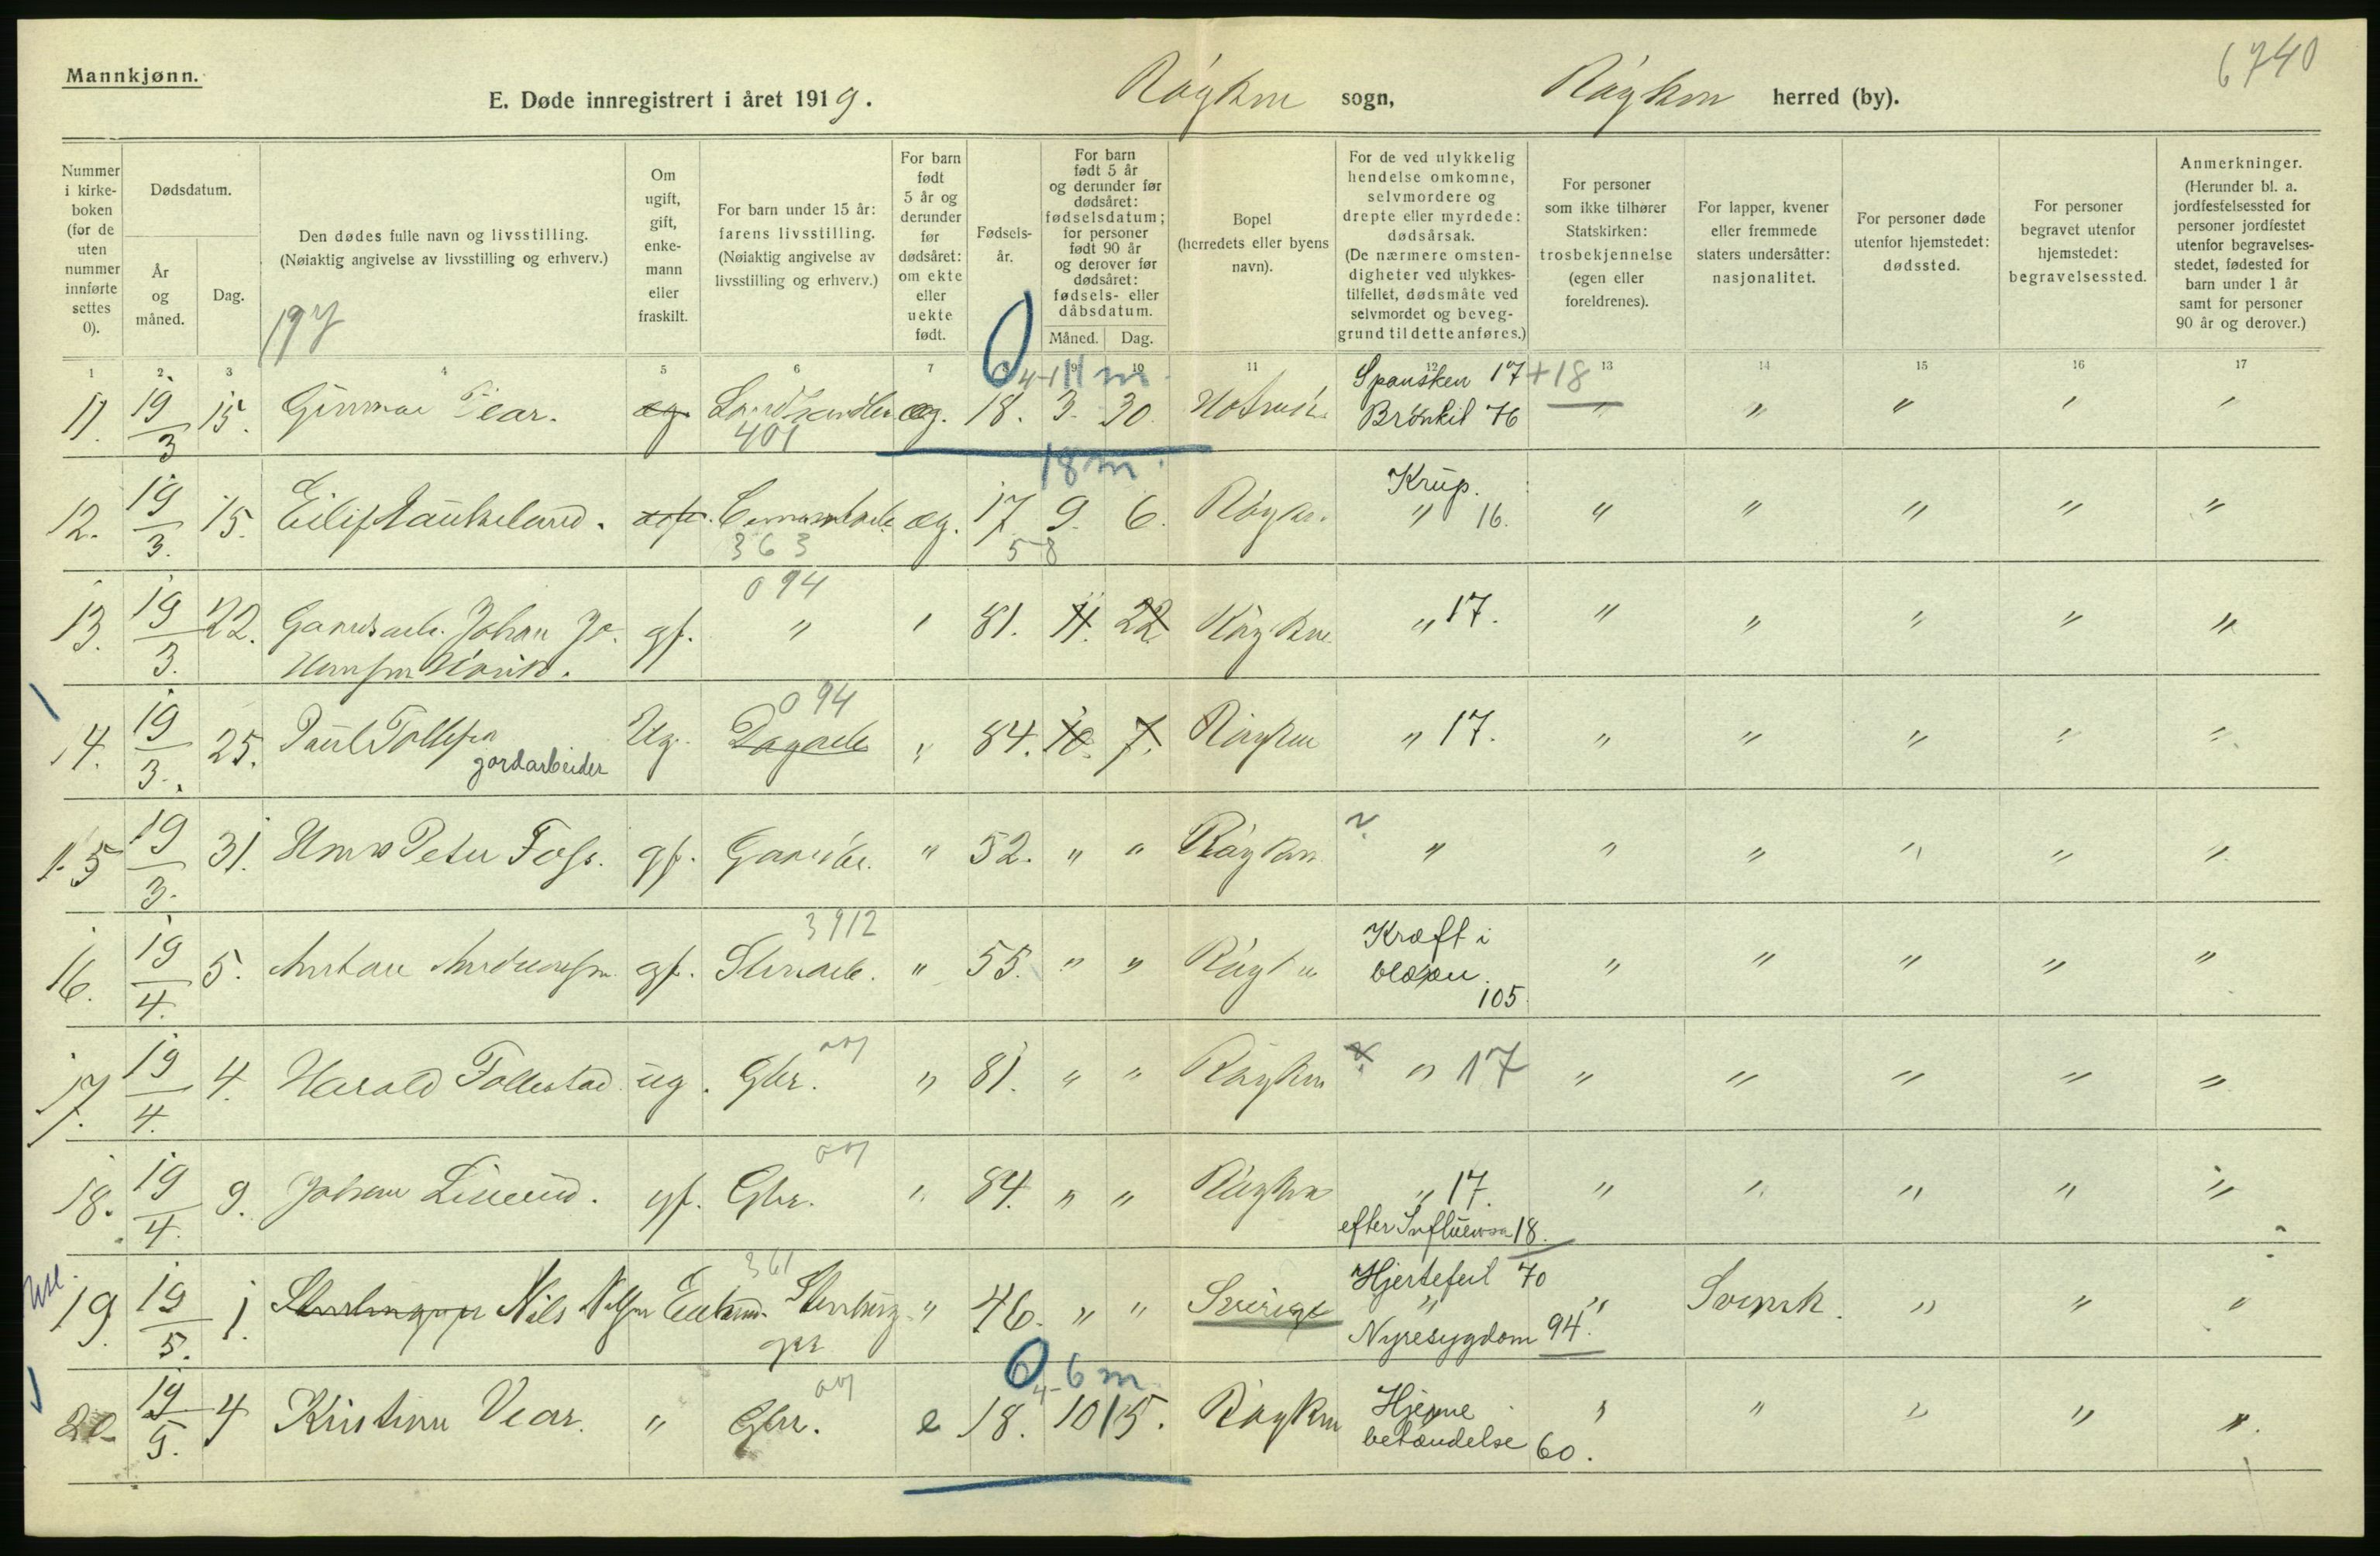 Mannkjønn.
6740
E. Døde innregistrert i året 1919.
Røyken sogn,
Røyken herred (by).
Nummer i kirkeboken (for de uten nummer innførte settes 0).
Dødsdatum.
År og måned.
Dag.
Den dødes fulle navn og livsstilling.
(Nøiaktig angivelse av livsstilling og erhverv.)
197
Om ugift, gift, enkemann eller fraskilt.
For barn under 15 år: farens livsstilling. (Nøiaktig angivelse av livsstilling og erhverv.)
For barn født 5 år og derunder før dødsåret: om ekte eller uekte født.
Fødselsår.
For barn født 5 år og derunder før dødsåret: fødselsdatum; for personer født 90 år og derover før dødsåret: fødsels- eller dåbsdatum.
Måned. Dag.
Bopel (herredets eller byens navn).
For de ved ulykkelig hendelse omkomne, selvmordere og drepte eller myrdede: dødsårsak. (De nærmere omstendigheter ved ulykkestilfellet, dødsmåte ved selvmordet og beveggrund til dette anføres.)
For personer som ikke tilhører Statskirken: trosbekjennelse (egen eller foreldrenes).
For lapper, kvener eller fremmede staters undersåtter: nasjonalitet.
For personer døde utenfor hjemstedet: dødssted.
For personer begravet utenfor hjemstedet: begravelsessted.
Anmerkninger. (Herunder bl. a. jordfestelsessted for personer jordfestet utenfor begravelsesstedet, fødested for barn under 1 år samt for personer 90 år og derover.)
1 2 3 4 5 6 7 9 10 11 12 13 14 15 16 17
0 4-11 m
Spansken 17+18
11. 19/3 15. Gunnar Vear. ug. Landhandler æg. 18. 3. 30. Brönkit 76 " " " " "
401
18 m.
Krup.
12. 19/3. 15. Eilif Haukeland. æg. 17. 9. 6. Røyken. " 16. " " " " "
363
58
094
13. 19/3. 22. Gaardarb. Johan Jo. gf. " " 81. 11. 22. Røyken " 17. " " " " "
094
14. 19/3. 25. Paul Tollefsen Ug. Dagarb " 84. 10. 7. Røyken " 17. " " " " "
gardarbeider
15 19/3. 31. Hans Peter Foss. gf. Gaardbr. " 52. " " Røyken ? " " " " " "
3912
Kræft i
16. 19/4. 5. Anton Andersen gf. Stenarb. " 55. " " Røyken blæren. " " " " "
105.
17. 19/4. 4. Harald Follestad ug. Gbr. " 81. " " Røyken " 17 " " " " "
18. 19/4. 9. Johan Limund. gf. Gbr. " 84. " " Røyken " 17. " " " " "
efter Influensa 18.
361
Hjertefeil 70
19. 19/5. 1. Nils Nilsen Stenhugger " 46. " " Sverige " " Svensk. " " "
Nyresygdom 94.
0 4-6 m.
20. 19/5. 4 Kristian Vear. " Gbr. e 18. 10 15. Røyken Hjerne " " " " "
betændelse 60.